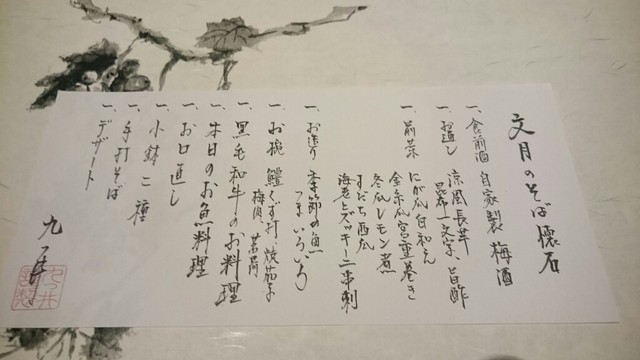 文月のそば懐石
一、食前酒 自家製 梅酒
一、お通し 涼風長芋
昆布一文字、旨酢
一、前菜 にが瓜白和え
金糸瓜宮重巻き
冬瓜レモン煮
すだち西瓜
海老とズッキーニ串刺
一、お造り 季節の魚
つまいろいろ
一、お椀 鱧くず打、焼茄子
梅肉
一、黒毛和牛のお料理
一、本日のお魚料理
一、お口直し
一、小鉢二種
一、手打そば
一、デザート